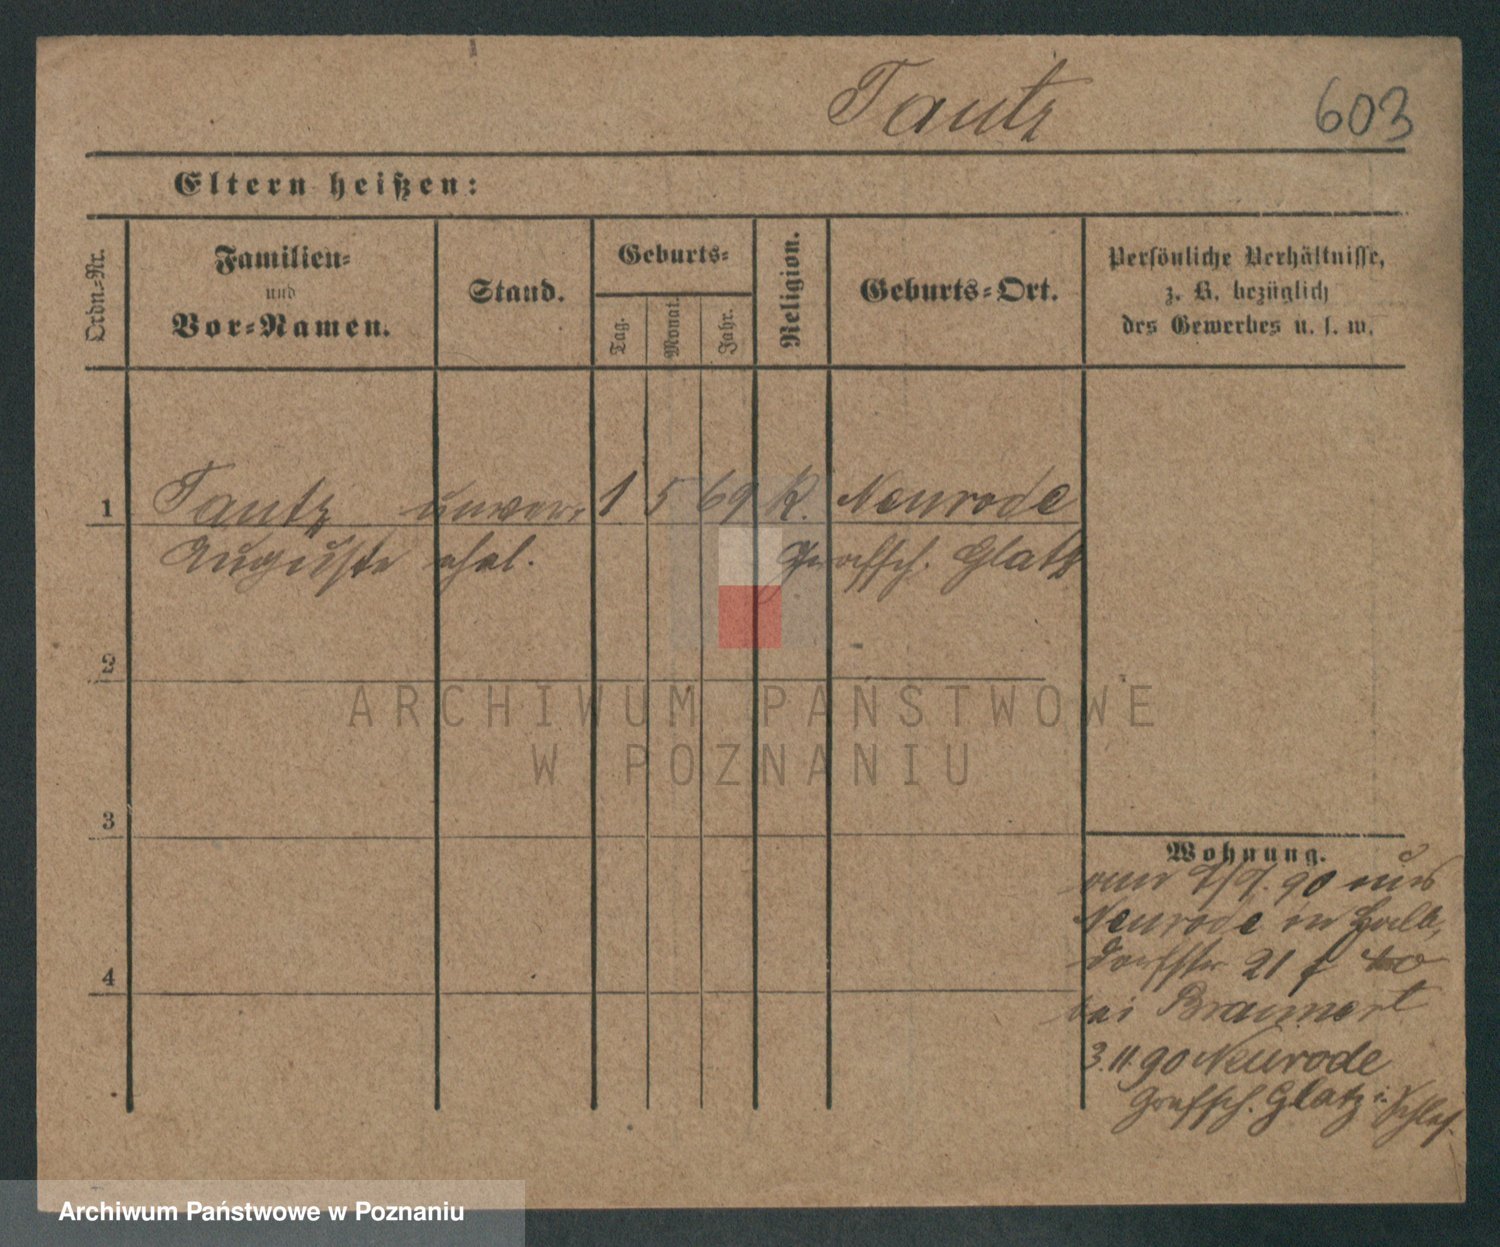 Tautz
603
Eltern heißen:
Ordn.-Nr.
Familien-
und
Vor-Namen.
Stand.
Geburts-
Tag.
Monat.
Jahr.
Religion.
Geburts-Ort.
Persönliche Verhältnisse,
z. B. bezüglich
des Gewerbes u. s. w.
1 Tautz unver- 1 5 69 K. Neurode
Auguste ehel. Grafsch. Glatz
2
ARCHIWUM PAŃSTWOWE
W POZNANIU
3
Wohnung.
90 aus
Neurode in Halb
dorfstr 21
bei Braunert
3.11.90 Neurode
Grafsch. Glatz i. Schles.
4
Archiwum Państwowe w Poznaniu